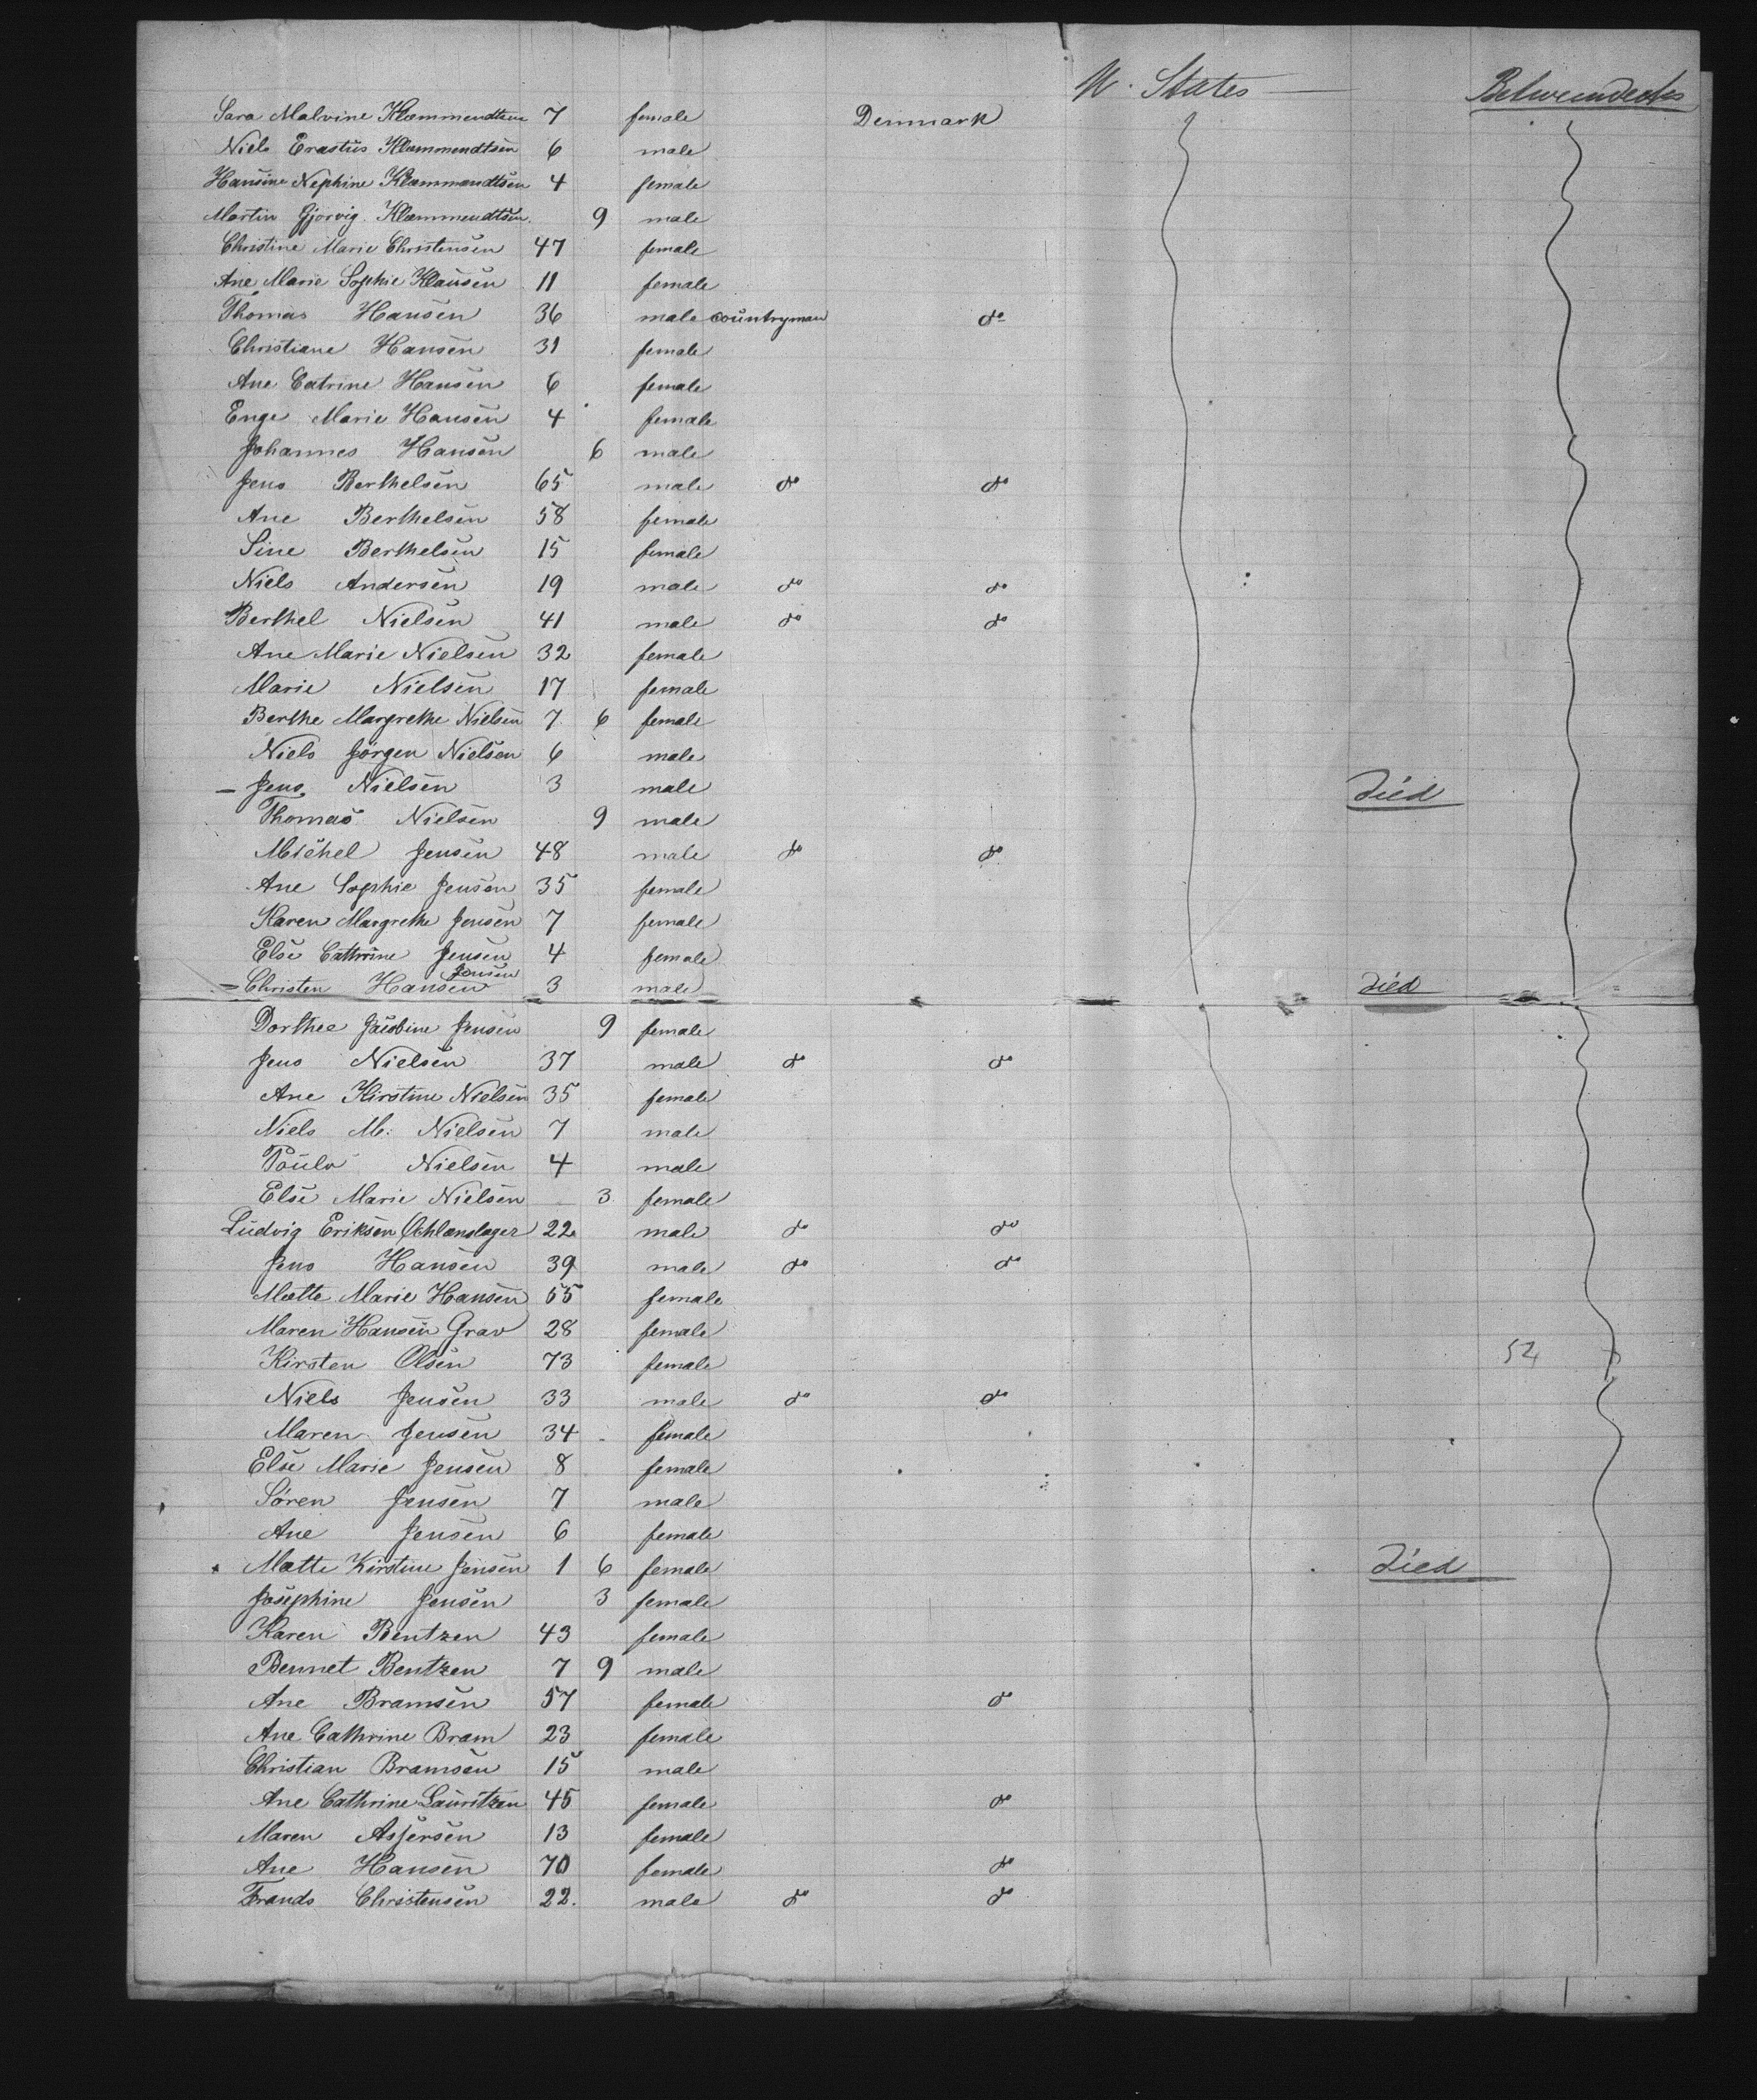 U. States — Betweendecks
Sara Malvine Klammendtsen 7 female Denmark
Niels Erastus Klammendtsen 6 male
Hansine Nephine Klammendtsen 4 female
Martin Gjorvig Klammendtsen 9 male
Christine Marie Christensen 47 female
Ane Marie Sophie Klausen 11 female
Thomas Hansen 36 male countryman do
Christiane Hansen 31 female
Ane Catrine Hansen 6 female
Enge Marie Hansen 4 female
Johannes Hansen 6 male
Jens Berthelsen 65 male do do
Ane Berthelsen 58 female
Sine Berthelsen 15 female
Niels Andersen 19 male do do
Berthel Nielsen 41 male do do
Ane Marie Nielsen 32 female
Marie Nielsen 17 female
Berthe Margrethe Nielsen 7 6 female
Niels Jörgen Nielsen 6 male
– Jens Nielsen 3 male Died
Thomas Nielsen 9 male
Michel Jensen 48 male do do
Ane Sophie Jensen 35 female
Karen Margrethe Jensen 7 female
Else Cathrine Jensen 4 female
– Christen Hansen Jensen 3 male Died
Dorthee Jacobine Jensen 9 female
Jens Nielsen 37 male do do
Ane Kirstine Nielsen 35 female
Niels M: Nielsen 7 male
Poulo Nielsen 4 male
Else Marie Nielsen 3 female
Ludvig Eriksen Oehlenslager 22 male do do
Jens Hansen 39 male do do
Mette Marie Hansen 55 female
Maren Hansen Grav 28 female
Kirsten Olsen 73 female 52
Niels Jensen 33 male do do
Maren Jensen 34 female
Else Marie Jensen 8 female
Sören Jensen 7 male
Ane Jensen 6 female
Mette Kirstine Jensen 1 6 female Died
Josephine Jensen 3 female
Karen Bentzen 43 female
Bennet Bentzen 7 9 male
Ane Bramsen 57 female do
Ane Cathrine Bram 23 female
Christian Bramsen 15 male
Ane Cathrine Lauritzen 45 female do
Maren Asfersen 13 female
Ane Hansen 70 female do
Frands Christensen 22. male do do